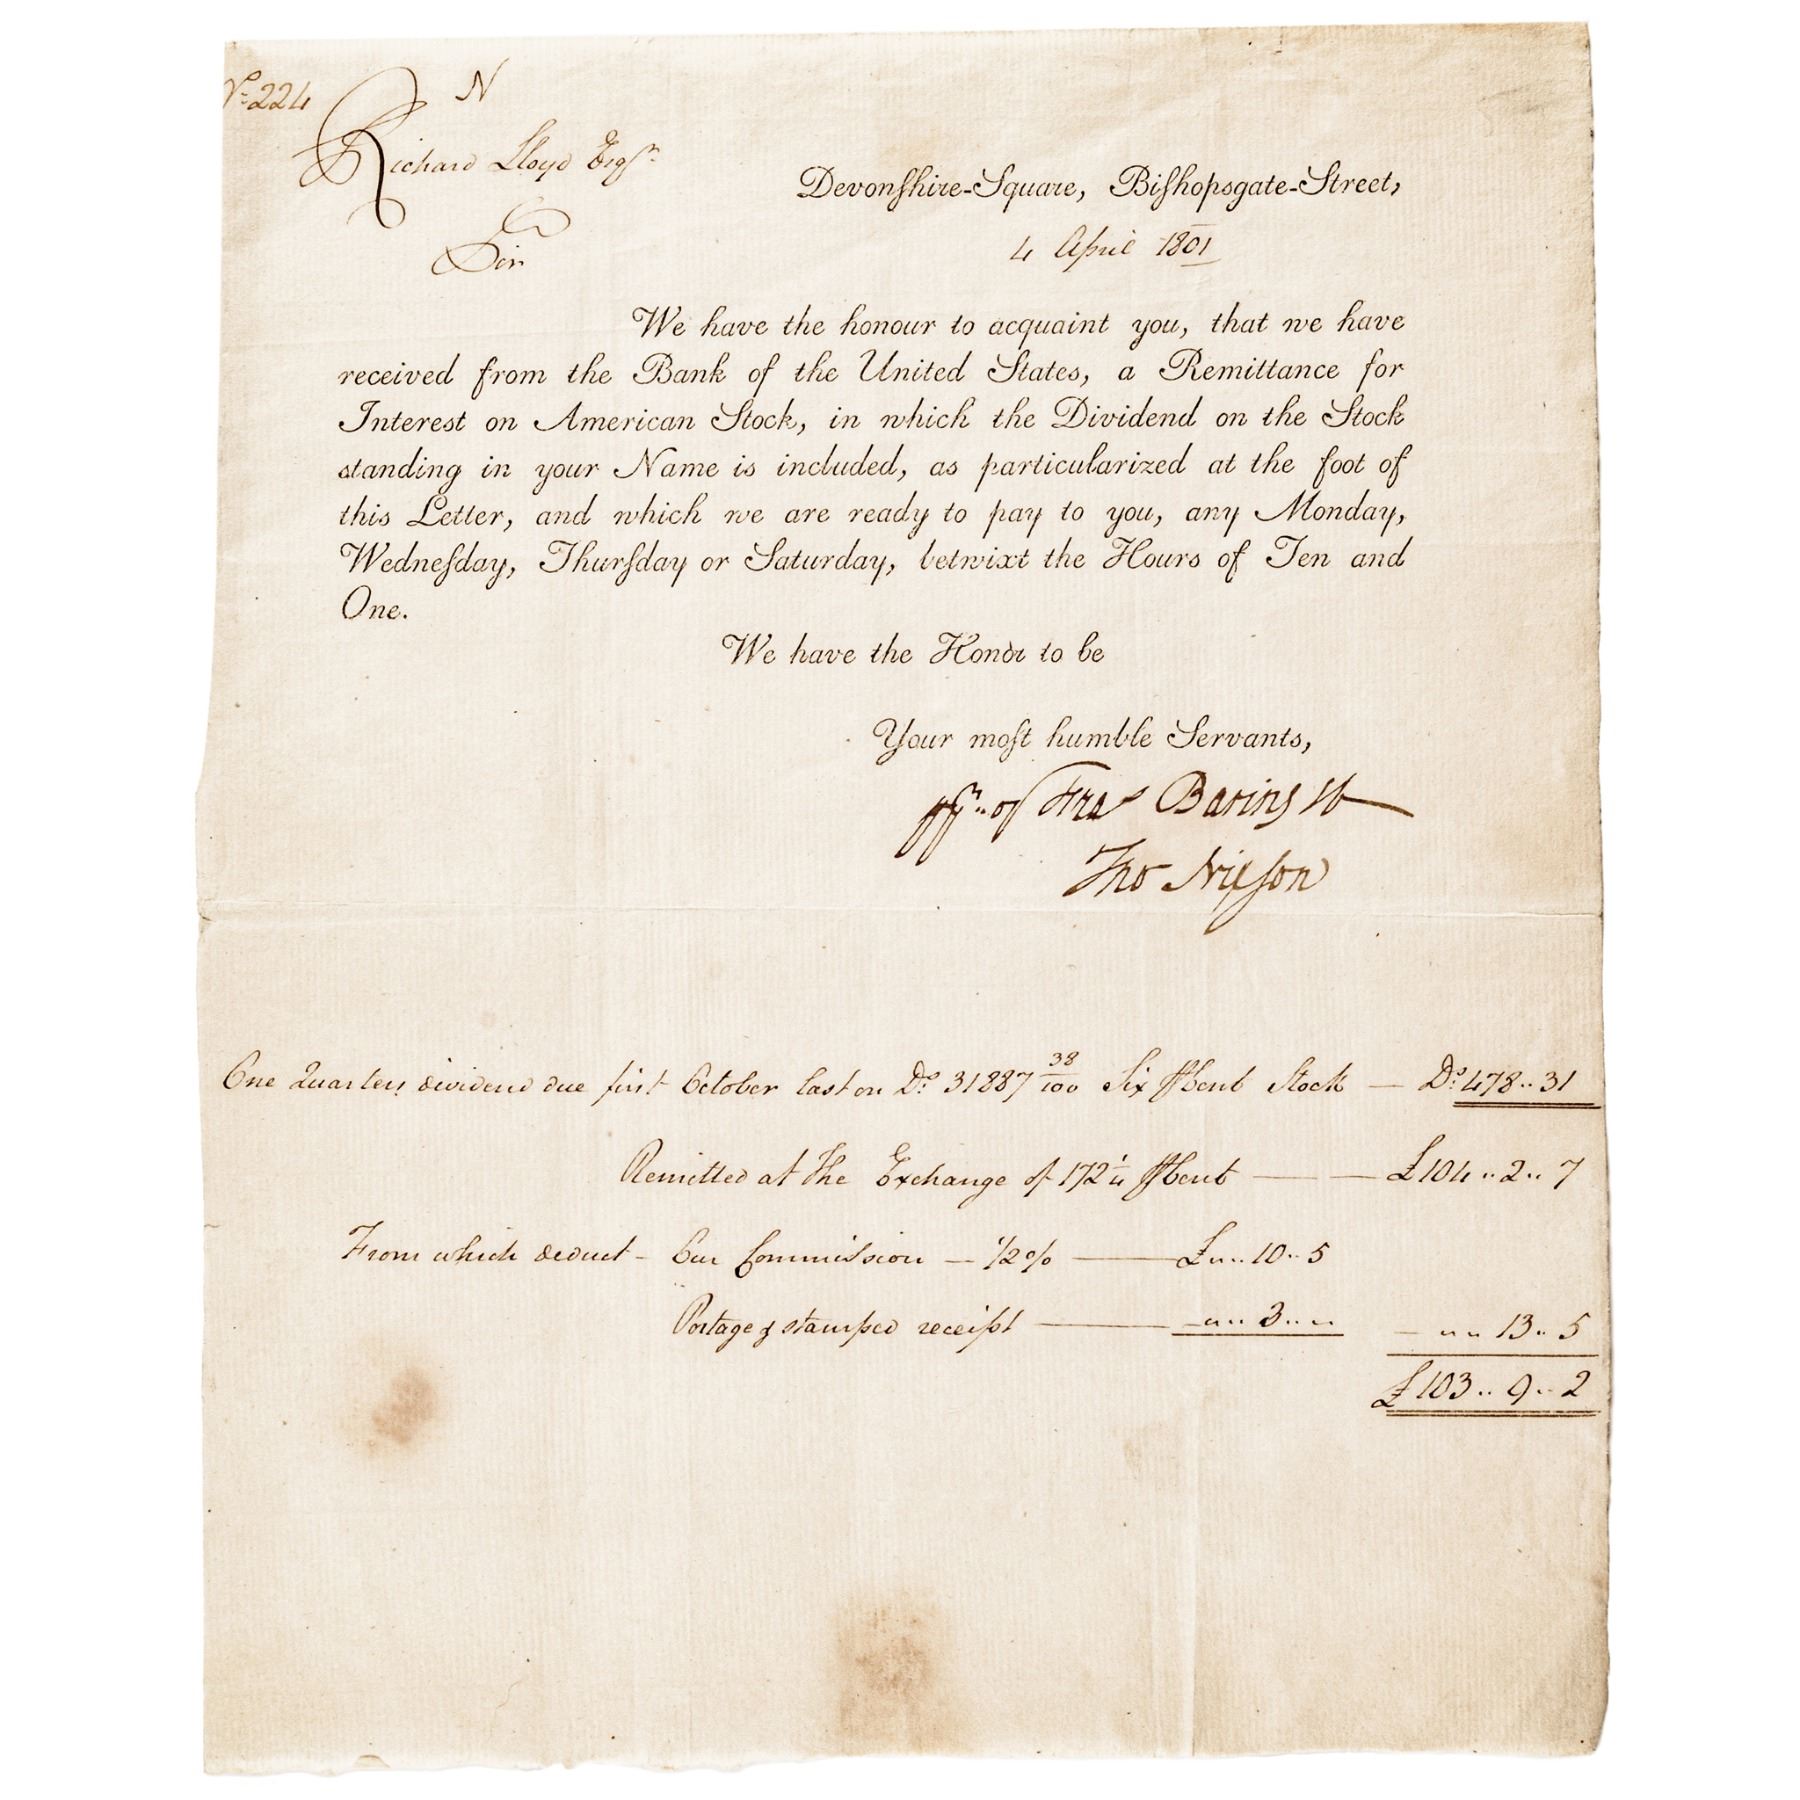 No. 224
N
Richard Lloyd Esqr.
Sir
Devonſhire-Square, Biſhopsgate-Street,
4 April 1801
We have the honour to acquaint you, that we have
received from the Bank of the United States, a Remittance for
Interest on American Stock, in which the Dividend on the Stock
standing in your Name is included, as particularized at the foot of
this Letter, and which we are ready to pay to you, any Monday,
Wedneſday, Thurſday or Saturday, betwixt the Hours of Ten and
One.
We have the Honor to be
Your moſt humble Servants,
of Fras Baring & Co
Tho Nixson
One Quarters dividend due first October last on Ds. 31887 38/100 Six ⅌ Cent Stock — Ds. 478..31
Remitted at the Exchange of 172 1/4 ⅌ Cent — — £104..2..7
From which deduct - Our Commiſsion — 1/2 % — £ „..10..5
Postage & stamped receipt — „..3..„ — „ „ 13..5
£103..9..2